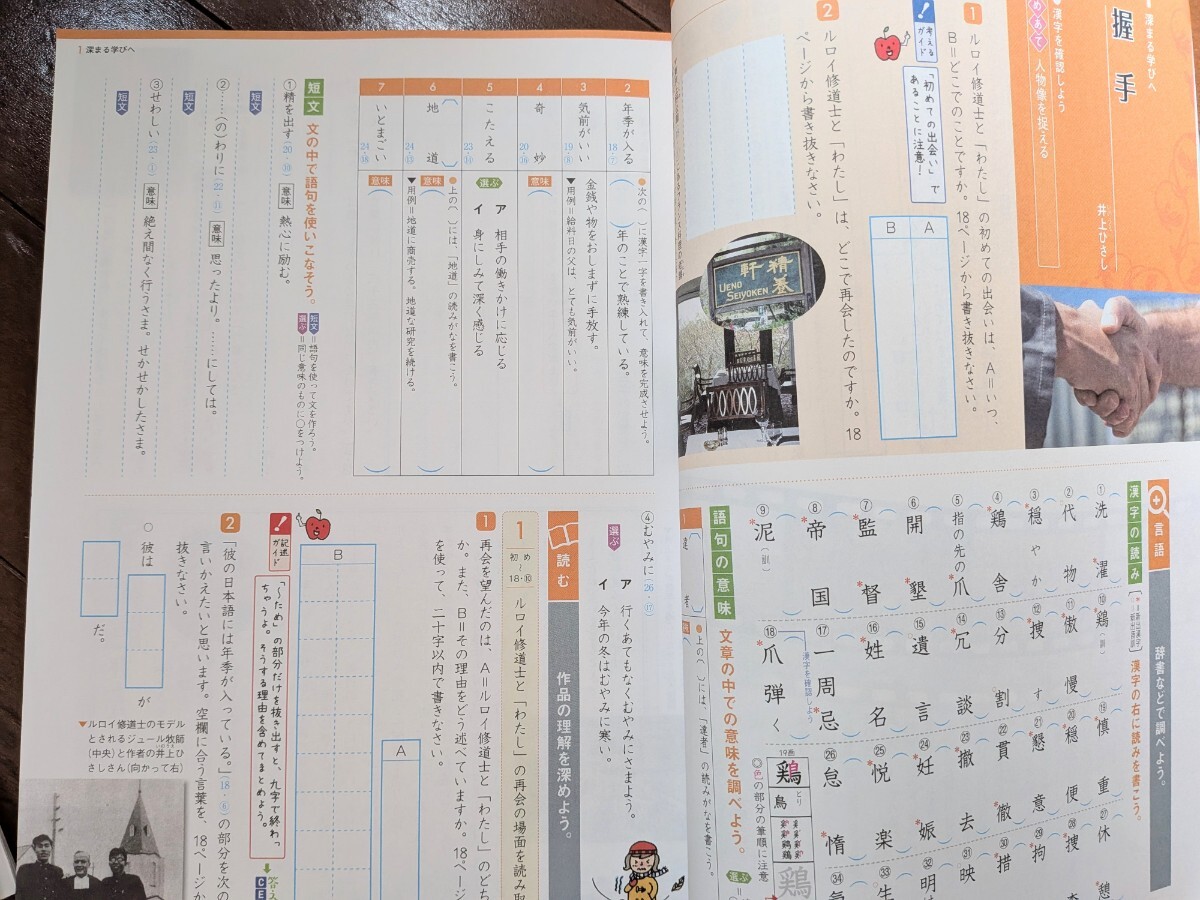 深まる学びへ
握手
井上ひさし
漢字を確認しよう
めあて 人物像を捉える
1 ルロイ修道士と「わたし」の初めての出会いは、A＝いつ、
B＝どこでのことですか。18ページから書き抜きなさい。
考えるガイド
「初めての出会い」で
あることに注意!
A
B
2 ルロイ修道士と「わたし」は、どこで再会したのですか。18
ページから書き抜きなさい。
精養軒
UENO
SEIYOKEN
言語 辞書などで調べよう。
漢字の読み 漢字の右に読みを書こう。
①洗濯
②代物
③穏やか
④鶏舎
⑤指の先の爪
⑥開墾
⑦監督
⑧帝国
⑨泥(訓)
⑩鶏(訓)
⑪傲慢
⑫捜す
⑬分割
⑭冗談
⑮遺言
⑯姓名
⑰一周忌
⑱爪弾く
漢字を確認しよう
⑲慎重
⑳穏便
㉑懇意
㉒貫徹
㉓撤去
㉔妊娠
㉕悦楽
㉖怠惰
㉗休憩
㉘捜
㉙拘
㉚措
㉛映
㉜明
㉝生
㉞
19画
鶏
鳥
とり
◎色の部分の筆順に注意
語句の意味 文章の中での意味を調べよう。
1
●上の( )には、「達者」の読みがなを書こう。
1 深まる学びへ
2 年季が入る 18・⑦
●次の( )に漢字一字を書き入れて、意味を完成させよう。
( )年のことで熟練している。
3 気前がいい 19・⑧
金銭や物をおしまずに手放す。
▼用例＝給料日の父は、とても気前がいい。
4 奇妙 20・⑯
意味
5 こたえる 23・⑭
選ぶ ア 相手の働きかけに応じる
イ 身にしみて深く感じる
6 地道 24・⑮
●上の( )には、「地道」の読みがなを書こう。
意味
▼用例＝地道に商売する。地道な研究を続ける。
7 いとまごい 24・⑱
意味
短文 文の中で語句を使いこなそう。
短文＝語句を使って文を作ろう。
選ぶ＝同じ意味のものに○をつけよう。
①精を出す(20・⑩) 意味 熱心に励む。
短文
②……(の)わりに 22・⑪ 意味 思ったより。……にしては。
短文
③せわしい 23・⑦ 意味 絶え間なく行うさま。せかせかしたさま。
短文
④むやみに(26・⑰)
選ぶ ア 行くあてもなくむやみにさまよう。
イ 今年の冬はむやみに寒い。
読む 作品の理解を深めよう。
1 初め〜18・⑩ ルロイ修道士と「わたし」の再会の場面を読み取
1 再会を望んだのは、A＝ルロイ修道士と「わたし」のどち
か。また、B＝その理由をどう述べていますか。18ペー
を使って、二十字以内で書きなさい。
A
B
記述ガイド
「〜ため」の部分だけを抜き出すと、九字で終わっ
ちゃうよ。そうする理由を含めてまとめよう。
2 「彼の日本語には年季が入っている。」18・⑥の部分を次の
言いかえたいと思います。空欄に合う言葉を、18ページか
抜きなさい。
○彼は
が
だ。
▼ルロイ修道士のモデル
とされるジュール牧師
(中央)と作者の井上ひ
さしさん(向かって右)